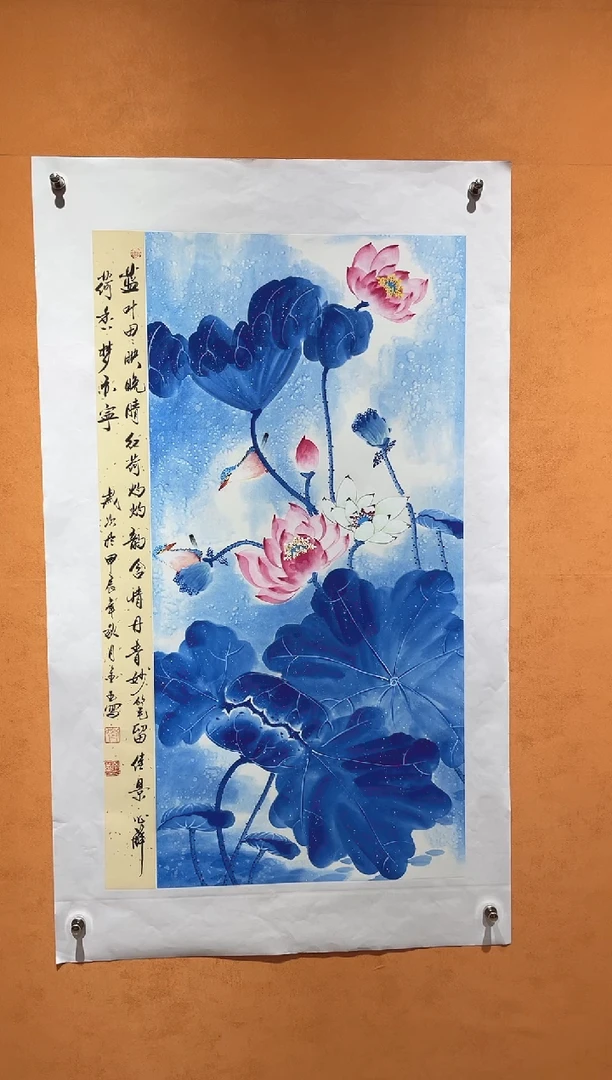 蓝叶田田映晚晴红荷灼灼韵含情丹青妙笔留佳景心醉
荷香梦亦宁
歲次於甲辰年秋月